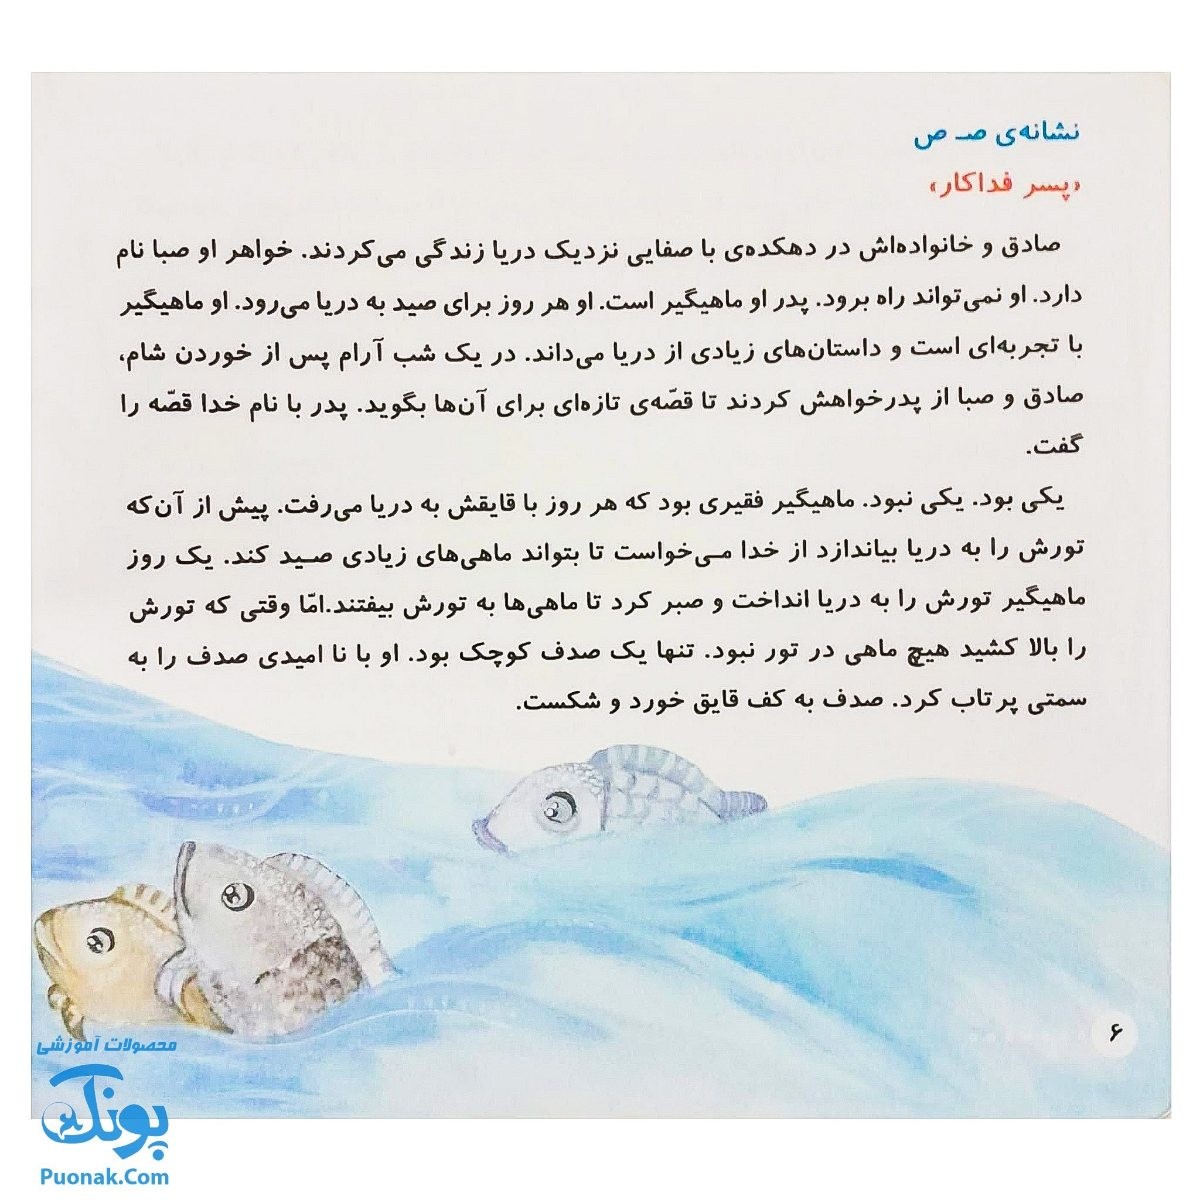 نشانه‌ی صـ ص
«پسر فداکار»
صادق و خانواده‌اش در دهکده‌ی با صفایی نزدیک دریا زندگی می‌کردند. خواهر او صبا نام
دارد. او نمی‌تواند راه برود. پدر او ماهیگیر است. او هر روز برای صید به دریا می‌رود. او ماهیگیر
با تجربه‌ای است و داستان‌های زیادی از دریا می‌داند. در یک شب آرام پس از خوردن شام،
صادق و صبا از پدرخواهش کردند تا قصّه‌ی تازه‌ای برای آن‌ها بگوید. پدر با نام خدا قصّه را
گفت.
یکی بود. یکی نبود. ماهیگیر فقیری بود که هر روز با قایقش به دریا می‌رفت. پیش از آن‌که
تورش را به دریا بیاندازد از خدا می‌خواست تا بتواند ماهی‌های زیادی صید کند. یک روز
ماهیگیر تورش را به دریا انداخت و صبر کرد تا ماهی‌ها به تورش بیفتند.امّا وقتی که تورش
را بالا کشید هیچ ماهی در تور نبود. تنها یک صدف کوچک بود. او با نا امیدی صدف را به
سمتی پرتاب کرد. صدف به کف قایق خورد و شکست.
۶
محصولات آموزشی
پونک
Puonak.Com